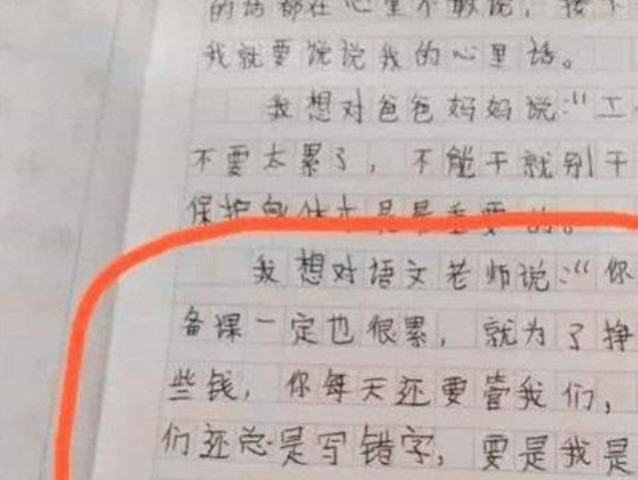 的话都在心里不敢说，接下
我就要说说我的心里话。
我想对爸爸妈妈说:“工
不要太累了，不能干就别干
保护身体才是最重要的。
我想对语文老师说:“你
备课一定也很累，就为了挣
些钱，你每天还要管我们，
们还总是写错字，要是我是